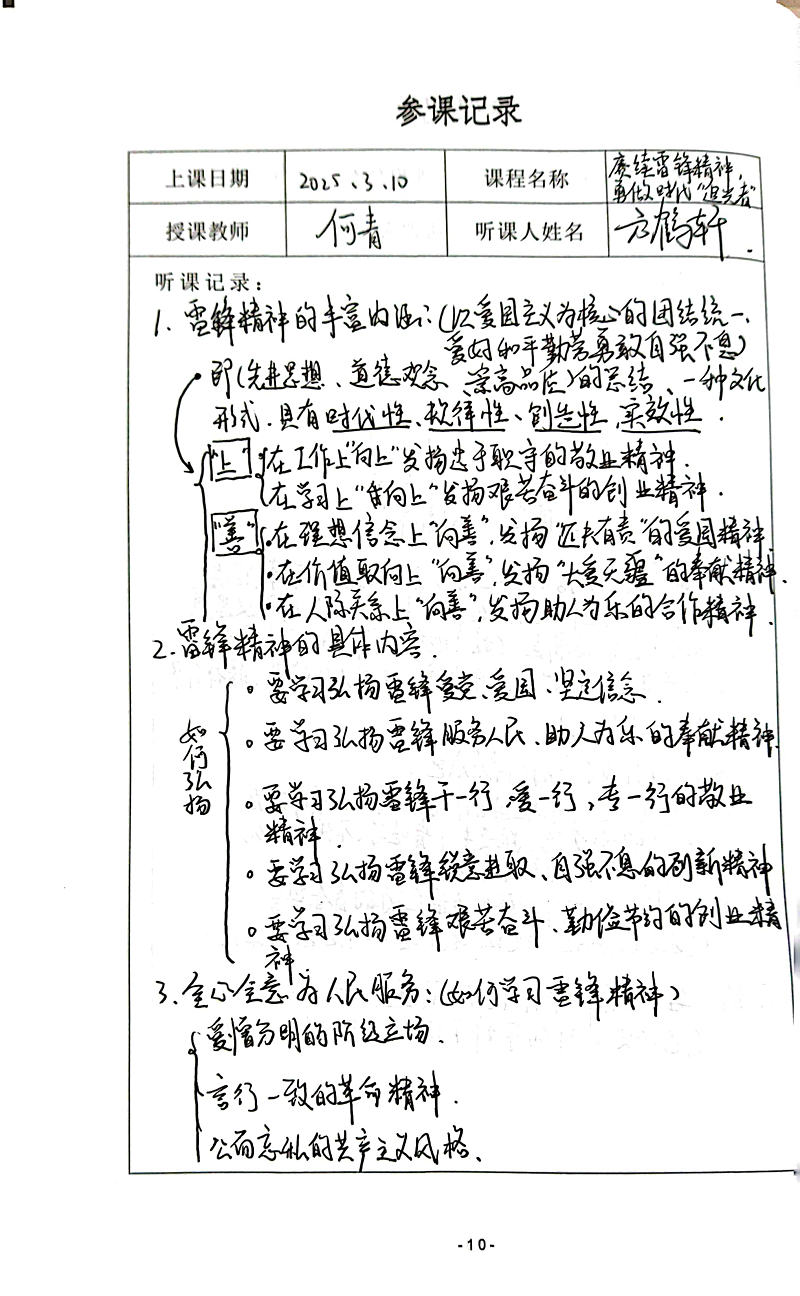 参课记录
上课日期 2025.3.10 课程名称 赓续雷锋精神，
勇做时代"追光者"
授课教师 何青 听课人姓名 方鹤轩.
听课记录：
1. 雷锋精神的丰富内涵：(以爱国主义为核心的团结统一、
爱好和平勤劳勇敢自强不息)
即(先进思想、道德观念、崇高品质)的总结、一种文化
形式.具有时代性、规律性、创造性,实效性.
"上" 在工作上"向上"发扬忠于职守的敬业精神.
在学习上"向上"发扬艰苦奋斗的创业精神.
"善" 在理想信念上"向善",发扬"匹夫有责"的爱国精神.
在价值取向上"向善",发扬"大爱无疆"的奉献精神.
在人际关系上"向善",发扬助人为乐的合作精神.
2. 雷锋精神的具体内容.
如何弘扬
。要学习弘扬雷锋爱党、爱国、坚定信念.
。要学习弘扬雷锋服务人民、助人为乐的奉献精神.
。要学习弘扬雷锋干一行,爱一行,专一行的敬业
精神.
。要学习弘扬雷锋锐意进取、自强不息的创新精神
。要学习弘扬雷锋艰苦奋斗、勤俭节约的创业精
神.
3. 全心全意为人民服务:(如何学习雷锋精神)
爱憎分明的阶级立场.
言行一致的革命精神.
公而忘私的共产主义风格、
-10-